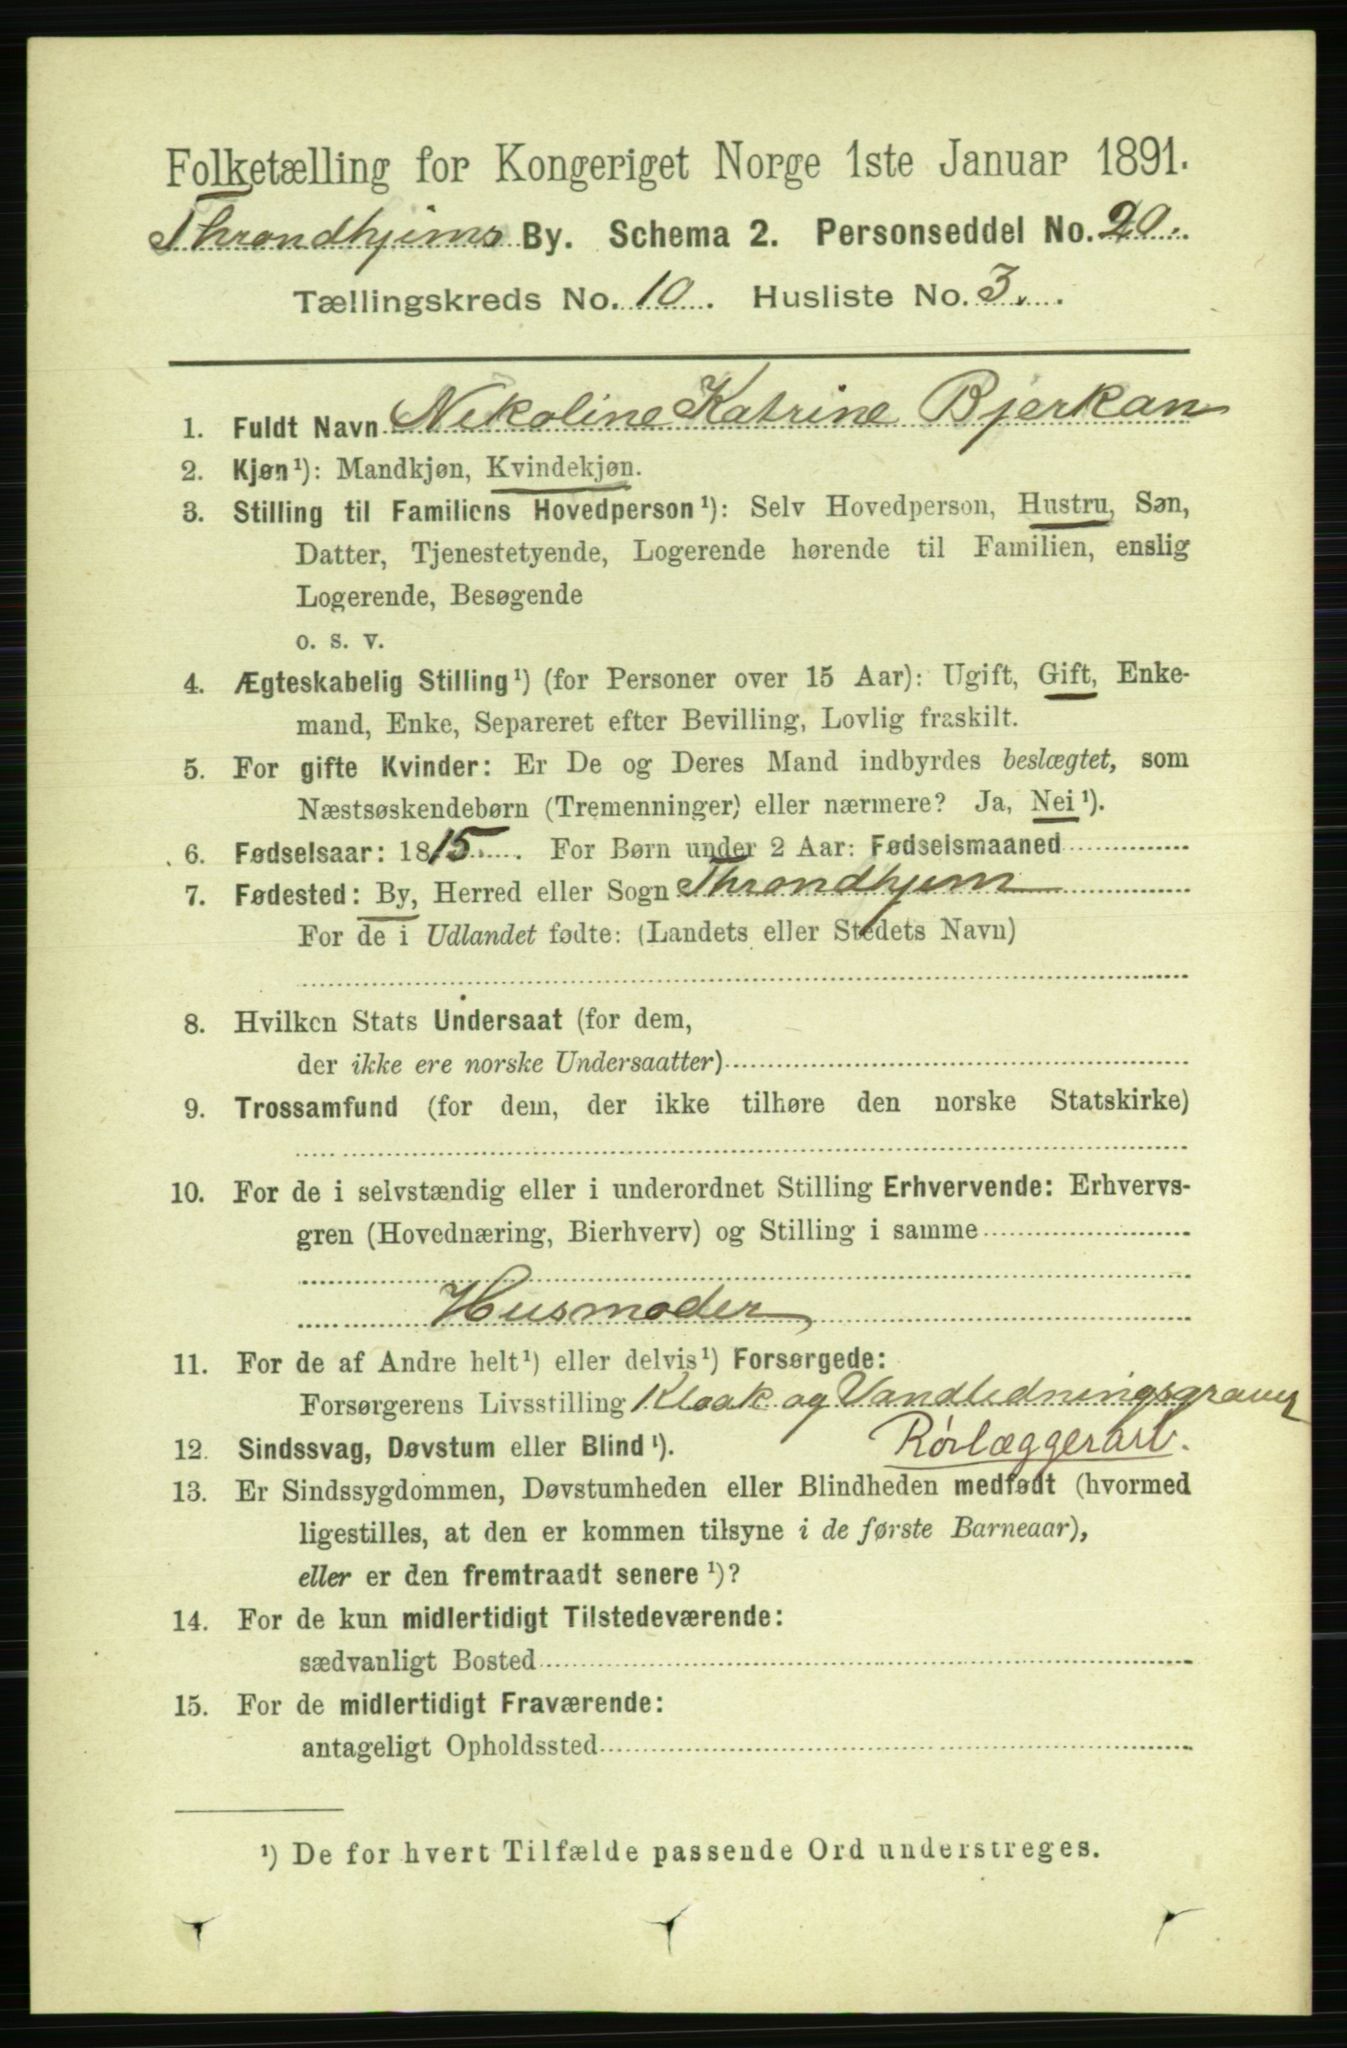 Folketælling for Kongeriget Norge 1ste Januar 1891.
Throndhjems By. Schema 2. Personseddel No. 20.
Tællingskreds No. 10. Husliste No. 3.
1. Fuldt Navn Nekoline Katrine Bjerkan
2. Kjøn ¹): Mandkjøn, Kvindekjøn.
3. Stilling til Familiens Hovedperson ¹): Selv Hovedperson, Hustru, Søn,
Datter, Tjenestetyende, Logerende hørende til Familien, enslig
Logerende, Besøgende
o. s. v.
4. Ægteskabelig Stilling ¹) (for Personer over 15 Aar): Ugift, Gift, Enke-
mand, Enke, Separeret efter Bevilling, Lovlig fraskilt.
5. For gifte Kvinder: Er De og Deres Mand indbyrdes beslægtet, som
Næstsøskendebørn (Tremenninger) eller nærmere? Ja, Nei ¹).
6. Fødselsaar: 1815. For Børn under 2 Aar: Fødselsmaaned
7. Fødested: By, Herred eller Sogn Throndhjem
For de i Udlandet fødte: (Landets eller Stedets Navn)
8. Hvilken Stats Undersaat (for dem,
der ikke ere norske Undersaatter)
9. Trossamfund (for dem, der ikke tilhøre den norske Statskirke)
10. For de i selvstændig eller i underordnet Stilling Erhvervende: Erhvervs-
gren (Hovednæring, Bierhverv) og Stilling i samme
Husmoder
11. For de af Andre helt ¹) eller delvis ¹) Forsørgede:
Forsørgerens Livsstilling Kloak og Vandledningsgraver
Rørlæggerarb.
12. Sindssvag, Døvstum eller Blind ¹).
13. Er Sindssygdommen, Døvstumheden eller Blindheden medfødt (hvormed
ligestilles, at den er kommen tilsyne i de første Barneaar),
eller er den fremtraadt senere ¹)?
14. For de kun midlertidigt Tilstedeværende:
sædvanligt Bosted
15. For de midlertidigt Fraværende:
antageligt Opholdssted
¹) De for hvert Tilfælde passende Ord understreges.